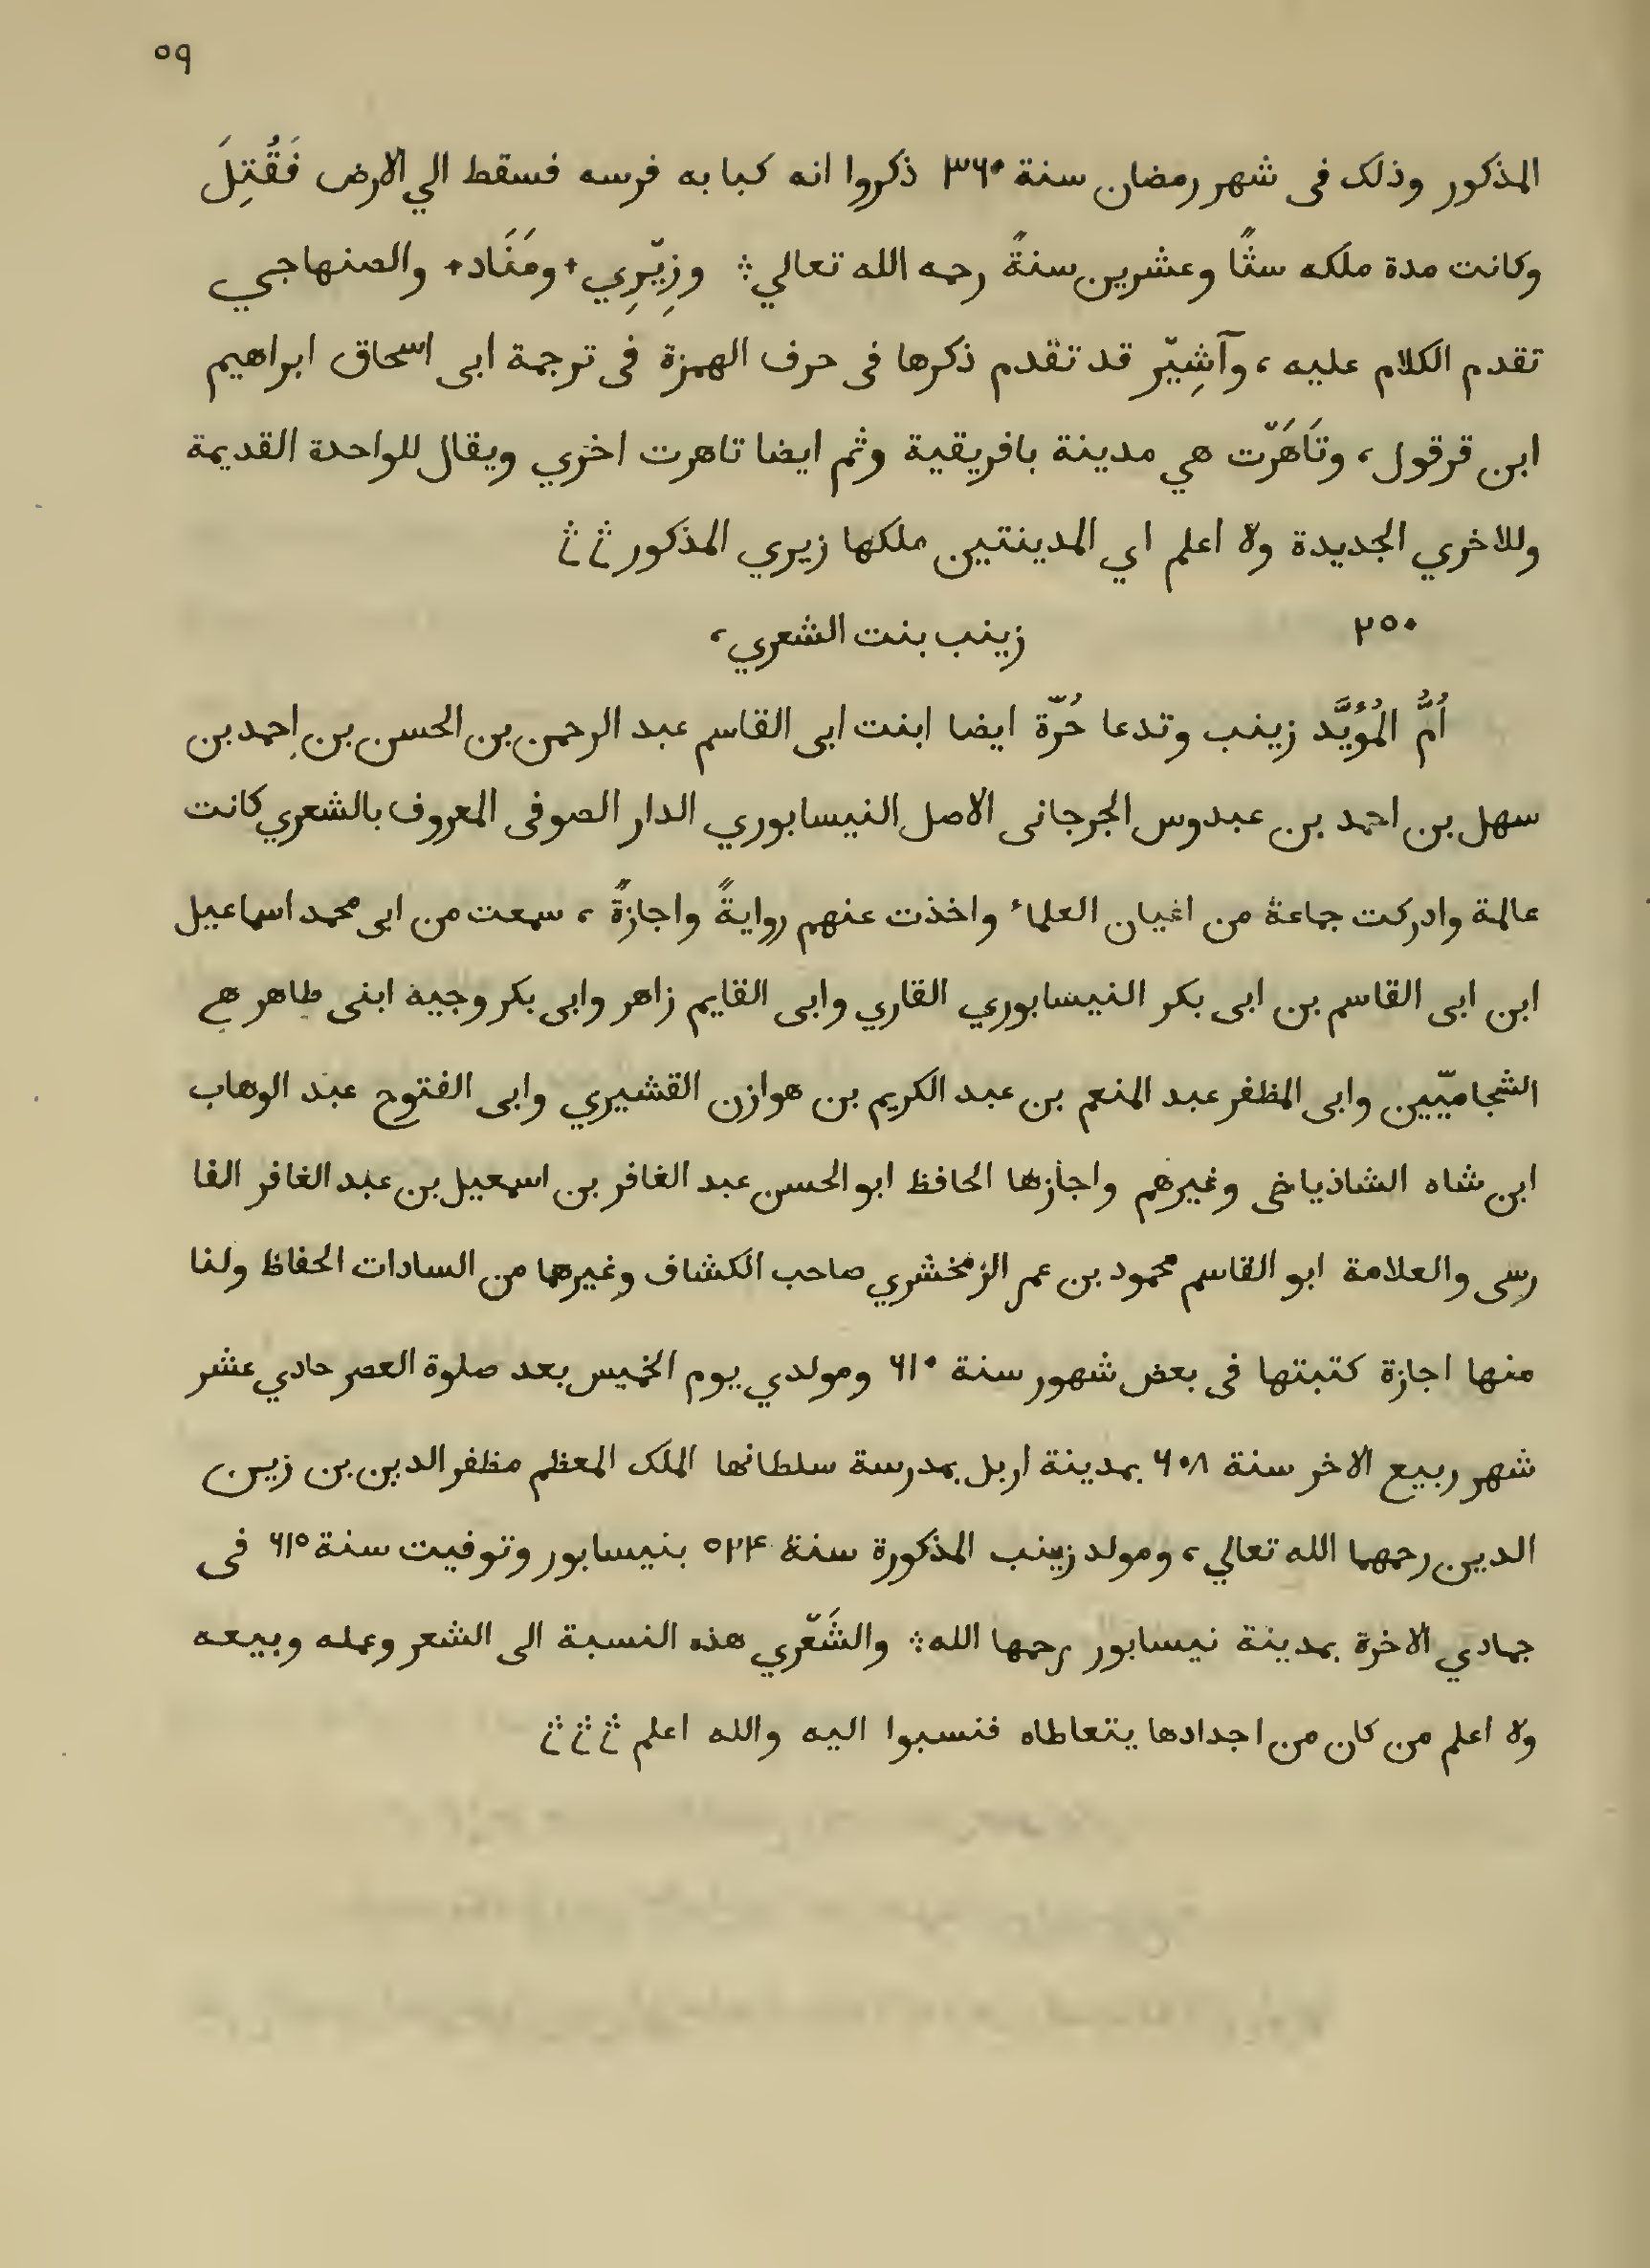 ٥٩
المذكور وذلك فى شهر رمضان سنة ٣٦٠ ذكروا انه كبا به فرسه فسقط الي الارض فَقُتِلَ
وكانت مدة ملكه ستًّا وعشرين سنةً رحمه الله تعالي؞ وزِيْرِي٬ ومَنَاد٬ والصنهاجي
تقدم الكلام عليه ، وآشِيْر قد تقدم ذكرها فى حرف الهمزة فى ترجمة ابى اسحاق ابراهيم
ابن قرقول ، وتَاهَرْت هي مدينة بافريقية وثم ايضا تاهرت اخري ويقال للواحدة القديمة
وللاخري الجديدة ولا اعلم اي المدينتين ملكها زيري المذكور
٢٥٠ زينب بنت الشعري ،
اُمُّ المُؤَيَّد زينب وتدعا حُرّة ايضا ابنت ابى القاسم عبد الرحمن بن الحسن بن احمد بن
سهل بن احمد بن عبدوس الجرجانى الاصل النيسابوري الدار الصوفى المعروف بالشعري كانت
عالمة وادركت جماعة من اعيان العلماء واخذت عنهم روايةً واجازةً ، سمعت من ابى محمد اسماعيل
ابن ابى القاسم بن ابى بكر النيسابوري القاري وابى القايم زاهر وابى بكر وجيه ابنى طاهر
الشجاميّين وابى المظفر عبد المنعم بن عبد الكريم بن هوازن القشيري وابى الفتوح عبد الوهاب
ابن شاه الشاذياخى وغيرهم واجازها الحافظ ابو الحسن عبد الغافر بن اسمعيل بن عبد الغافر الفا
رسى والعلامة ابو القاسم محمود بن عمر الزمخشري صاحب الكشاف وغيرهما من السادات الحفاظ ولنا
منها اجازة كتبتها فى بعض شهور سنة ٦١٠ ومولدي يوم الخميس بعد صلوة العصر حادي عشر
شهر ربيع الاخر سنة ٦٠٨ بمدينة اربل بمدرسة سلطانها الملك المعظم مظفر الدين بن زين
الدين رحمهما الله تعالي ، ومولد زينب المذكورة سنة ٥٢۴ بنيسابور وتوفيت سنة ٦١٥ فى
جمادي الاخرة بمدينة نيسابور رحمها الله؞ والشَّعْري هذه النسبة الى الشعر وعمله وبيعه
ولا اعلم من كان من اجدادها يتعاطاه فنسبوا اليه والله اعلم